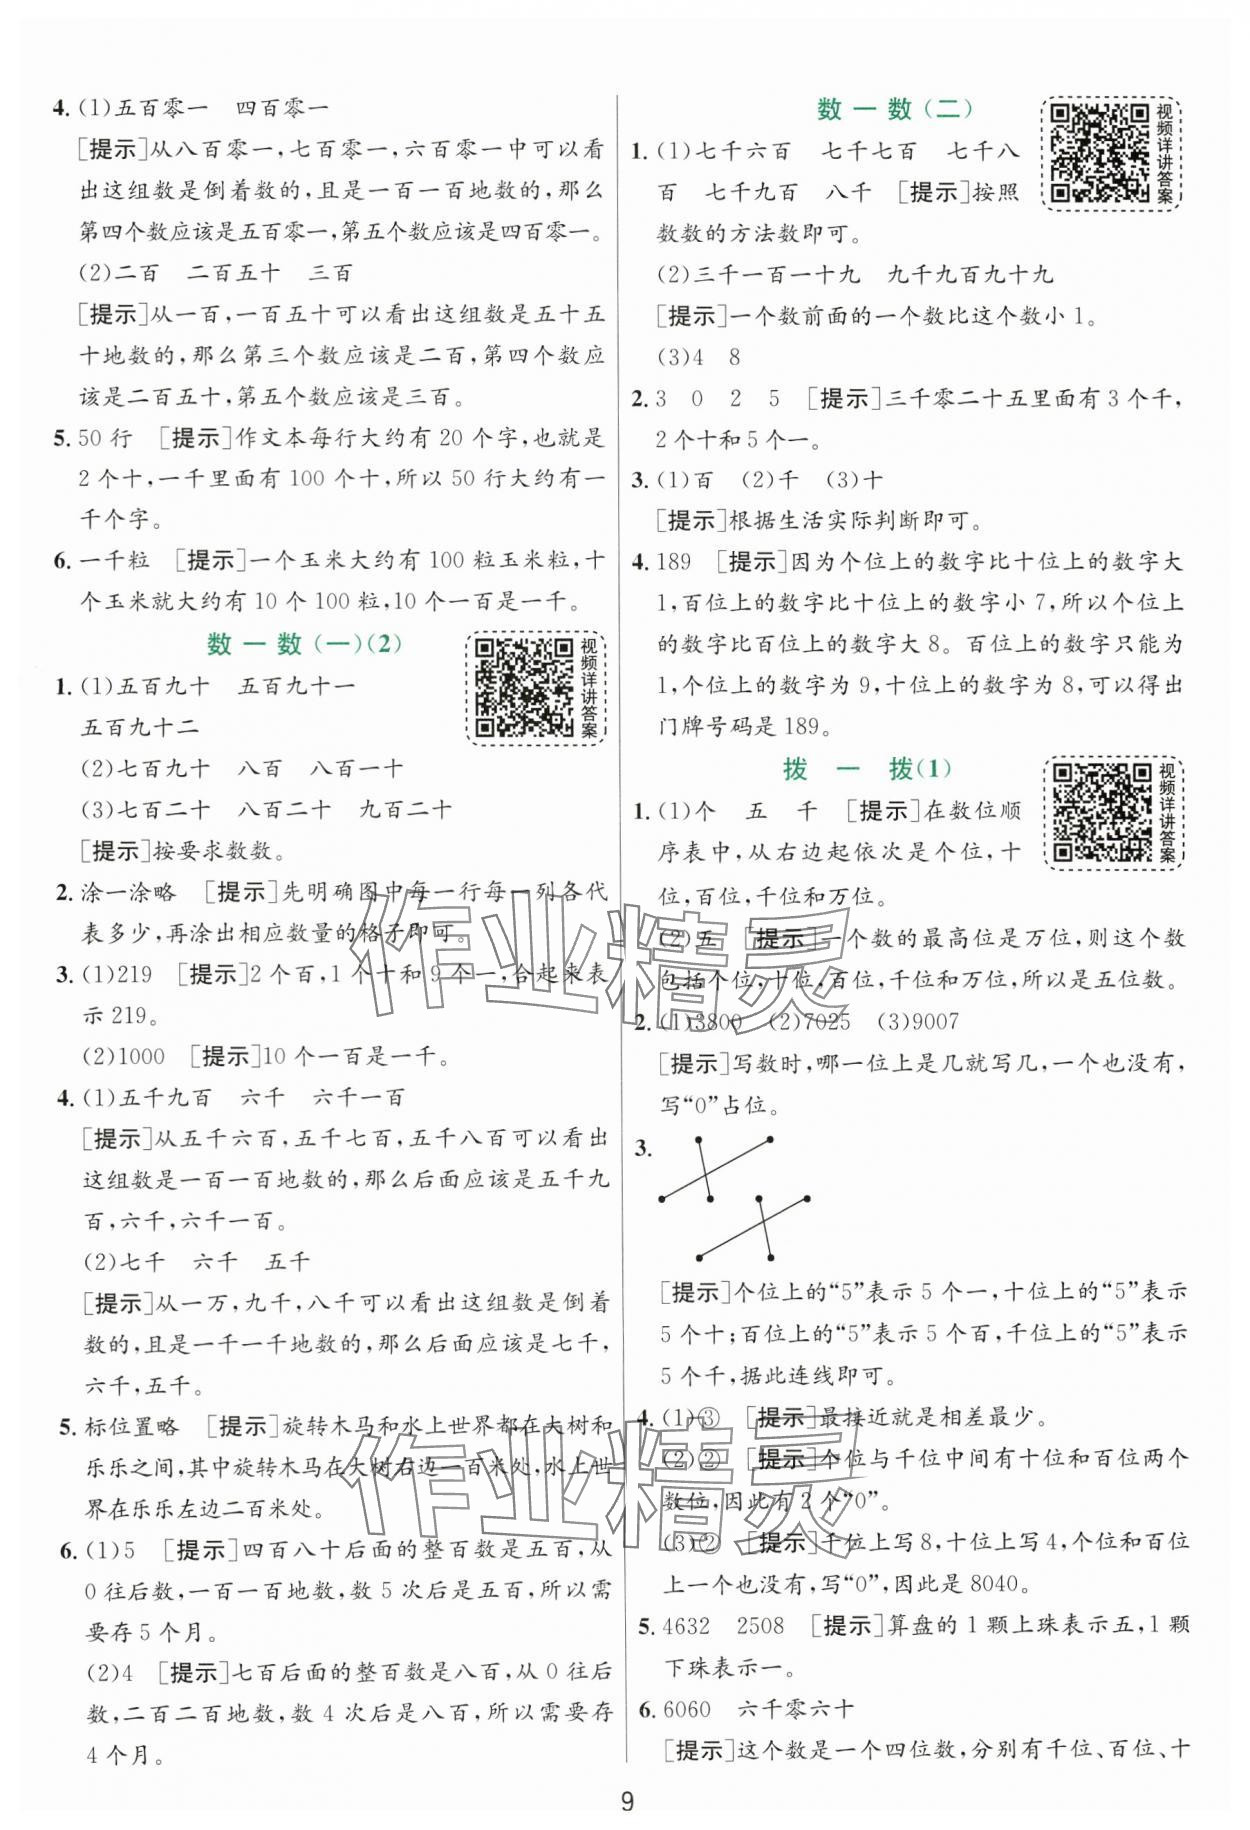 4. (1)五百零一　四百零一
[提示]从八百零一,七百零一,六百零一中可以看
出这组数是倒着数的,且是一百一百地数的,那么
第四个数应该是五百零一,第五个数应该是四百零一。
(2)二百　二百五十　三百
[提示]从一百,一百五十可以看出这组数是五十五
十地数的,那么第三个数应该是二百,第四个数应
该是二百五十,第五个数应该是三百。
5. 50行　[提示]作文本每行大约有20个字,也就是
2个十,一千里面有100个十,所以50行大约有一
千个字。
6. 一千粒　[提示]一个玉米大约有100粒玉米粒,十
个玉米就大约有10个100粒,10个一百是一千。
数一数(一)(2)
视频详讲答案
1. (1)五百九十　五百九十一
五百九十二
(2)七百九十　八百　八百一十
(3)七百二十　八百二十　九百二十
[提示]按要求数数。
2. 涂一涂略　[提示]先明确图中每一行每一列各代
表多少,再涂出相应数量的格子即可。
3. (1)219　[提示]2个百,1个十和9个一,合起来表
示219。
(2)1000　[提示]10个一百是一千。
4. (1)五千九百　六千　六千一百
[提示]从五千六百,五千七百,五千八百可以看出
这组数是一百一百地数的,那么后面应该是五千九
百,六千,六千一百。
(2)七千　六千　五千
[提示]从一万,九千,八千可以看出这组数是倒着
数的,且是一千一千地数的,那么后面应该是七千,
六千,五千。
5. 标位置略　[提示]旋转木马和水上世界都在大树和
乐乐之间,其中旋转木马在大树右边一百米处,水上世
界在乐乐左边二百米处。
6. (1)5　[提示]四百八十后面的整百数是五百,从
0往后数,一百一百地数,数5次后是五百,所以需
要存5个月。
(2)4　[提示]七百后面的整百数是八百,从0往后
数,二百二百地数,数4次后是八百,所以需要存
4个月。
数一数(二)
视频详讲答案
1. (1)七千六百　七千七百　七千八
百　七千九百　八千　[提示]按照
数数的方法数即可。
(2)三千一百一十九　九千九百九十九
[提示]一个数前面的一个数比这个数小1。
(3)4　8
2. 3　0　2　5　[提示]三千零二十五里面有3个千,
2个十和5个一。
3. (1)百　(2)千　(3)十
[提示]根据生活实际判断即可。
4. 189　[提示]因为个位上的数字比十位上的数字大
1,百位上的数字比十位上的数字小7,所以个位上
的数字比百位上的数字大8。百位上的数字只能为
1,个位上的数字为9,十位上的数字为8,可以得出
门牌号码是189。
拨一拨(1)
视频详讲答案
1. (1)个　五　千　[提示]在数位顺
序表中,从右边起依次是个位,十
位,百位,千位和万位。
(2)五　[提示]一个数的最高位是万位,则这个数
包括个位,十位,百位,千位和万位,所以是五位数。
2. (1)3800　(2)7025　(3)9007
[提示]写数时,哪一位上是几就写几,一个也没有,
写“0”占位。
3.
[提示]个位上的“5”表示5个一,十位上的“5”表示
5个十;百位上的“5”表示5个百,千位上的“5”表示
5个千,据此连线即可。
4. (1)③　[提示]最接近就是相差最少。
(2)②　[提示]个位与千位中间有十位和百位两个
数位,因此有2个“0”。
(3)②　[提示]千位上写8,十位上写4,个位和百位
上一个也没有,写“0”,因此是8040。
5. 4632　2508　[提示]算盘的1颗上珠表示五,1颗
下珠表示一。
6. 6060　六千零六十
[提示]这个数是一个四位数,分别有千位、百位、十
作业精灵
作业精灵
9